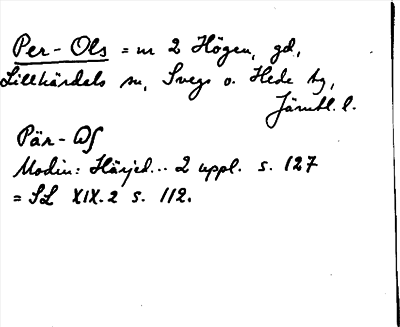 Per-Ols = nr 2 Högen, gd,
Lillhärdals sn, Svegs o. Hede tg,
Jämtl. l.
Pär-Ols
Modin: Härjed... 2 uppl. s. 127
= SL XIX.2 s. 112.